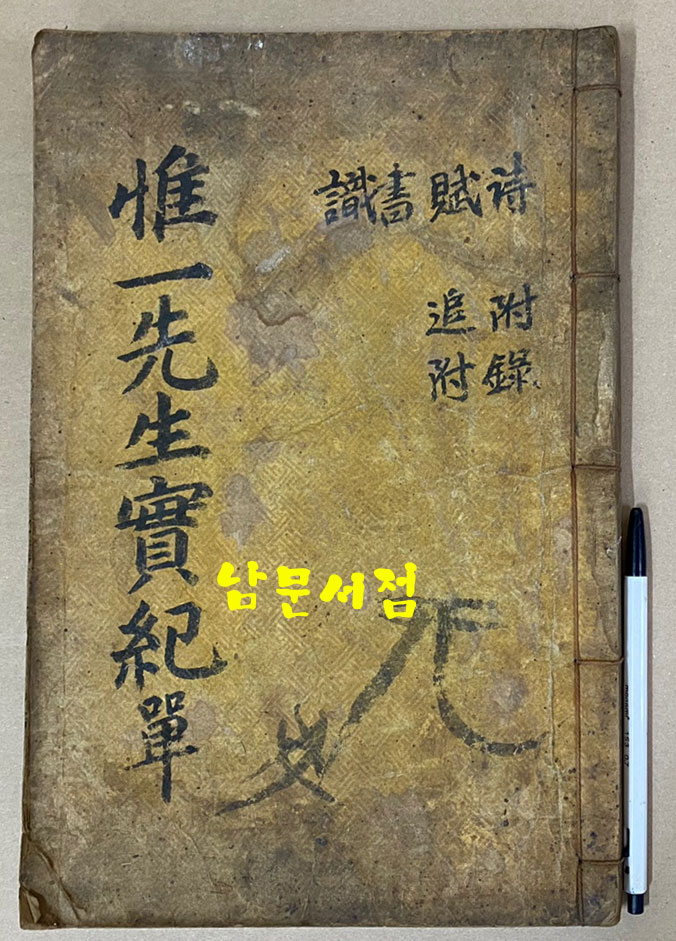 詩 賦 書 識
附錄
追附
惟一先生實紀單
남문서점